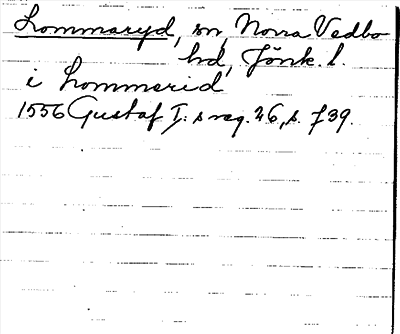 Lommaryd, sn, Norra Vedbo
hd, Jönk. l.
i Lommerid
1556 Gustaf I:s reg. 26, s. 739.